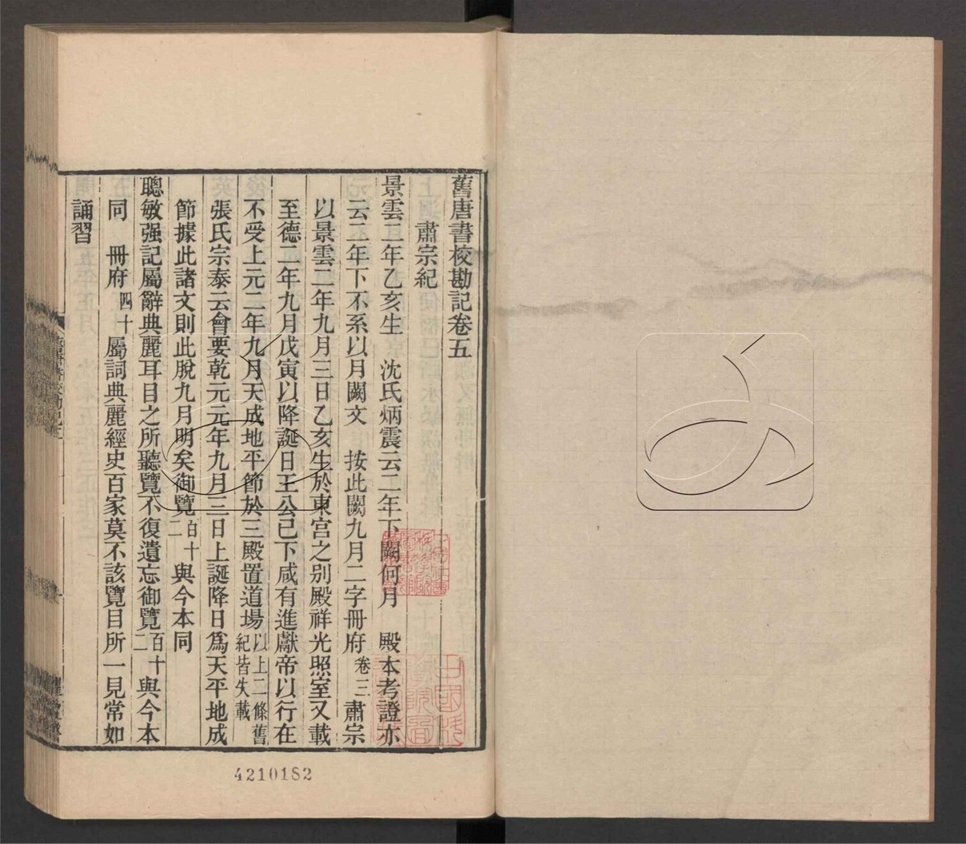 舊唐書校勘記卷五
肅宗紀
景雲二年乙亥生　沈氏炳震云二年下闕何月　殿本考證亦
云二年下不系以月闕文　按此闕九月二字冊府卷三肅宗
以景雲二年九月三日乙亥生於東宮之别殿祥光照室又載
至德二年九月戊寅以降誕日王公已下咸有進獻帝以行在
不受上元二年九月天成地平節於三殿置道場以上二條舊紀皆失載
張氏宗泰云會要乾元元年九月三日上誕降日爲天平地成
節據此諸文則此脫九月明矣御覽百十二與今本同
聰敏强記屬辭典麗耳目之所聽覽不復遺忘御覽百十二與今本
同　冊府四十屬詞典麗經史百家莫不該覽目所一見常如
誦習
4210182